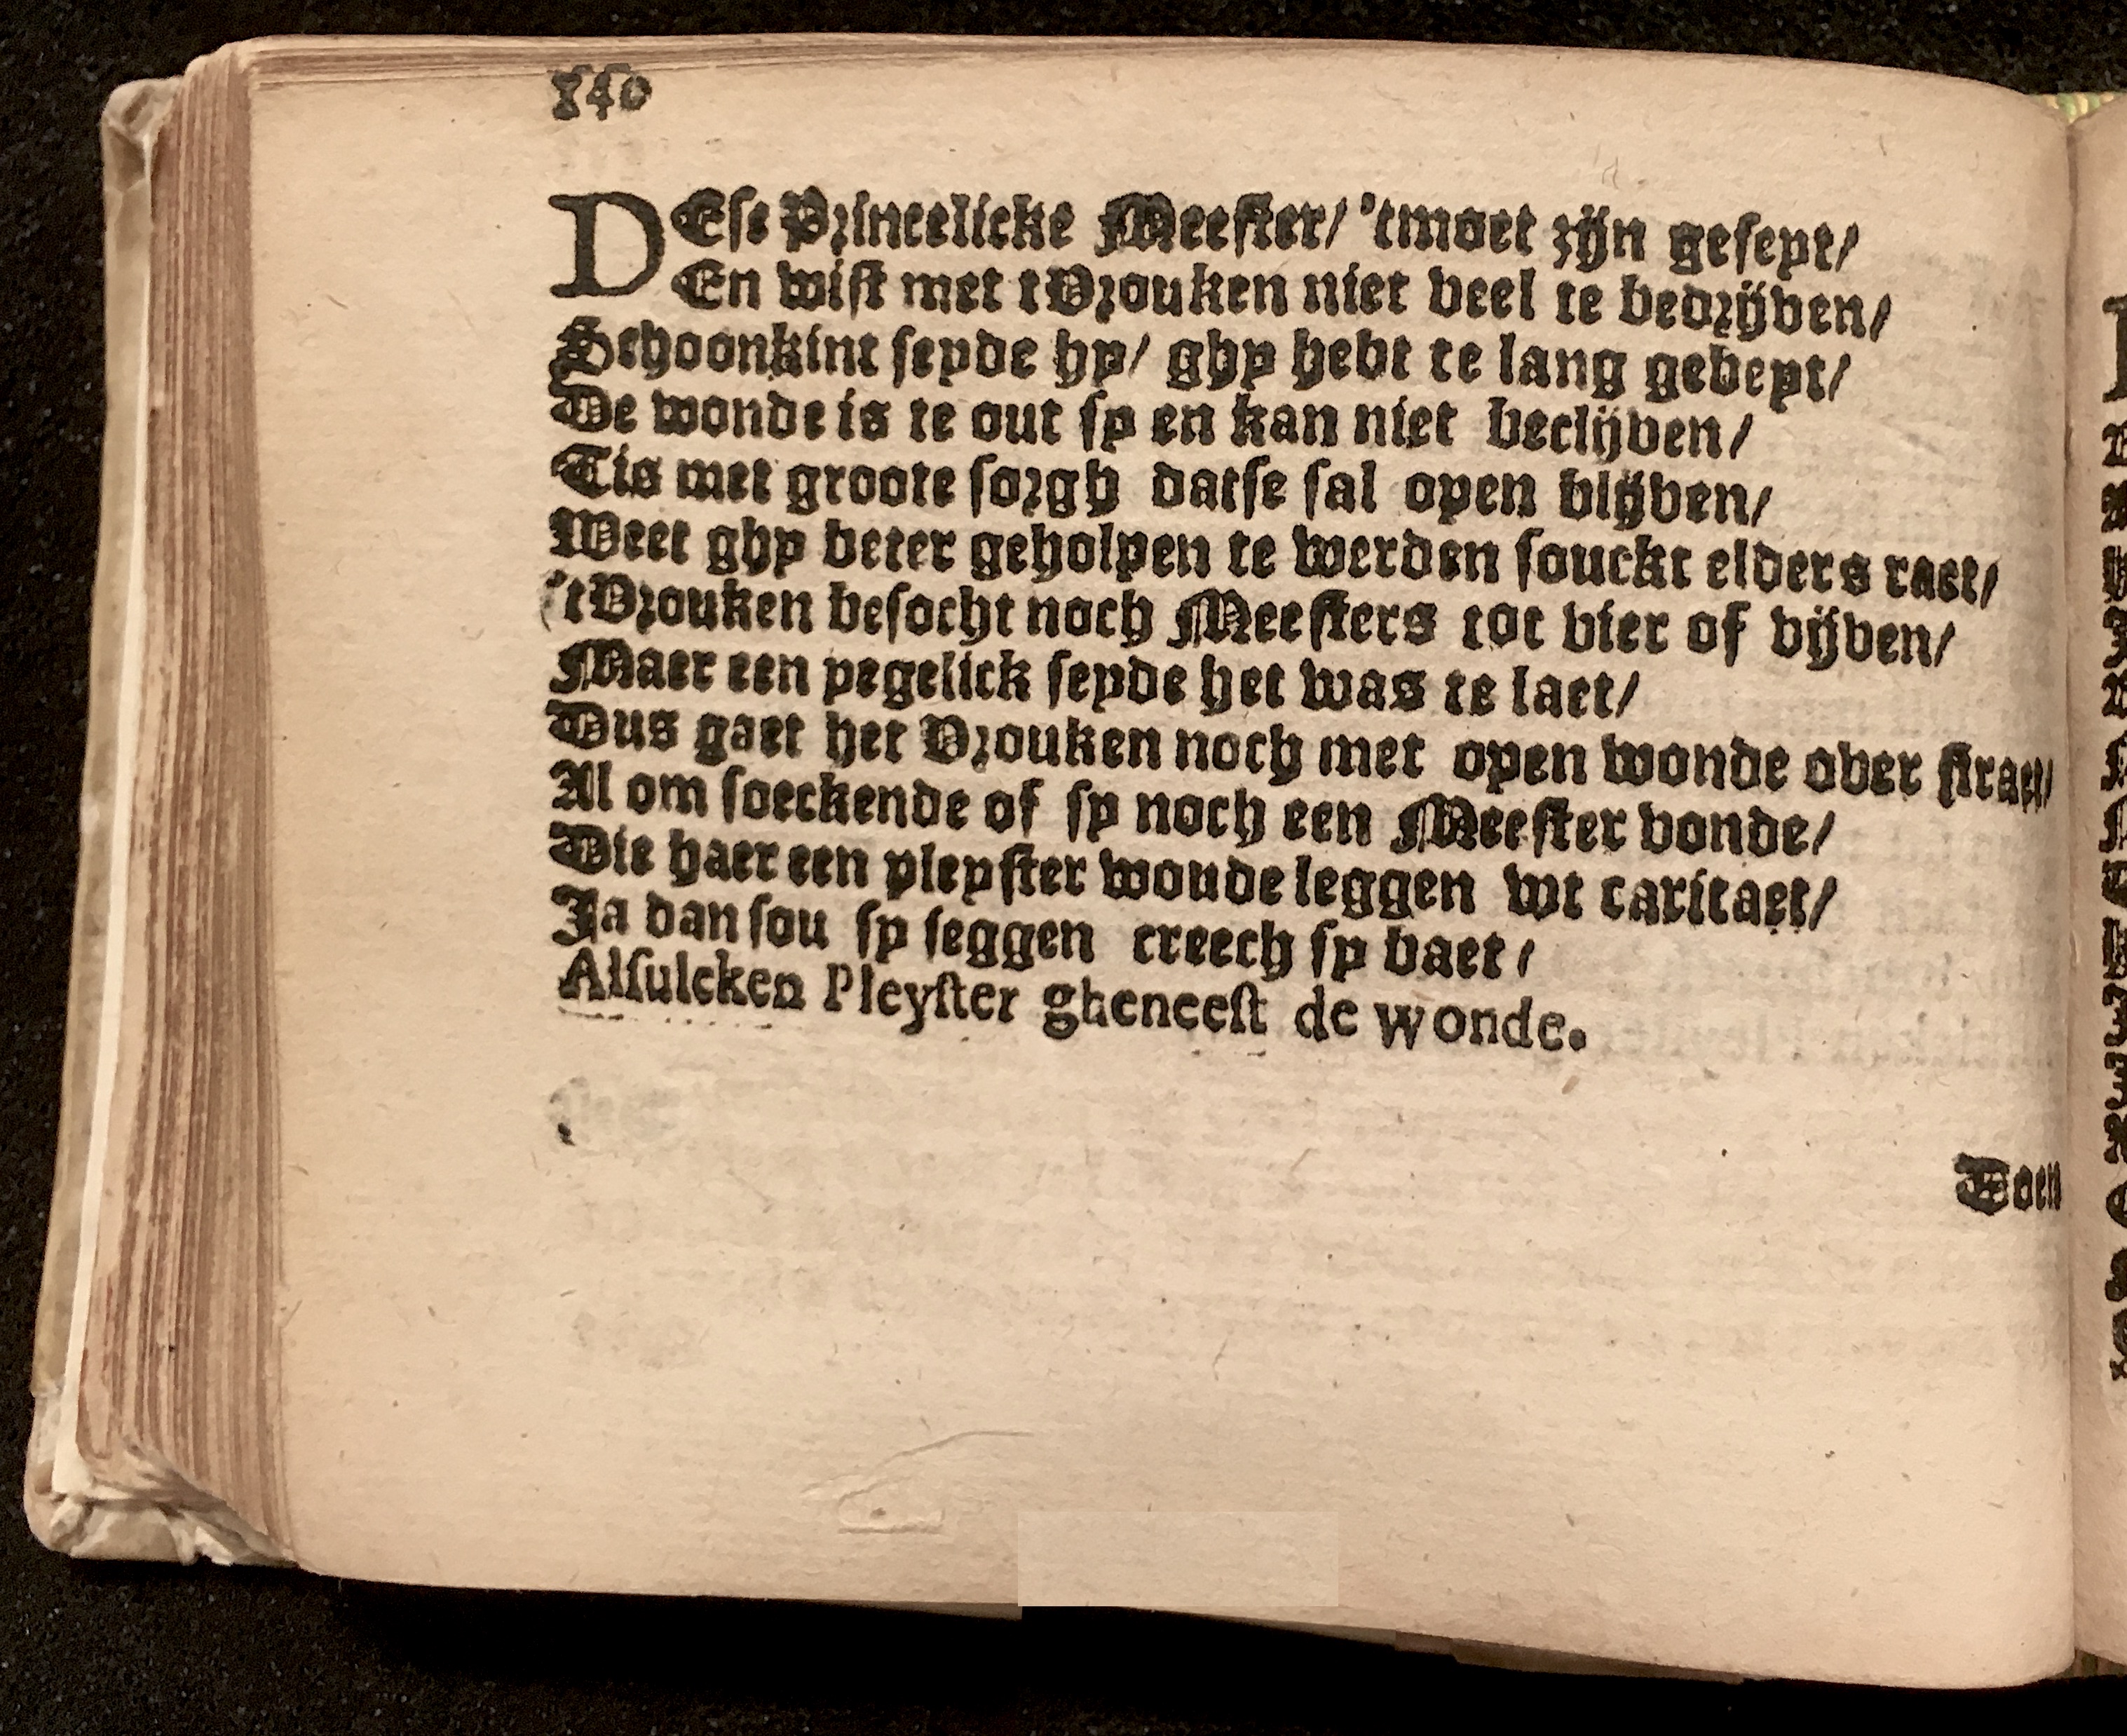 840
DEse Princelicke Meester/ 'tmoet zijn geseyt/
En wist met t Vrouken niet veel te bedrijven/
Schoonkint seyde hy/ ghy hebt te lang gebeyt/
De wonde is te out sy en kan niet beclijven/
Tis met groote sorgh datse sal open blijven/
Weet ghy beter geholpen te werden souckt elders raet/
't Vrouken besocht noch Meesters tot vier of vijven/
Maer een yegelick seyde het was te laet/
Dus gaet het Vrouken noch met open wonde over straet/
Al om soeckende of sy noch een Meester vonde/
Die haer een pleyster woude leggen wt caritaet/
Ja dan sou sy seggen creech sy baet/
Alsulcken Pleyster gheneest de wonde.
Doen